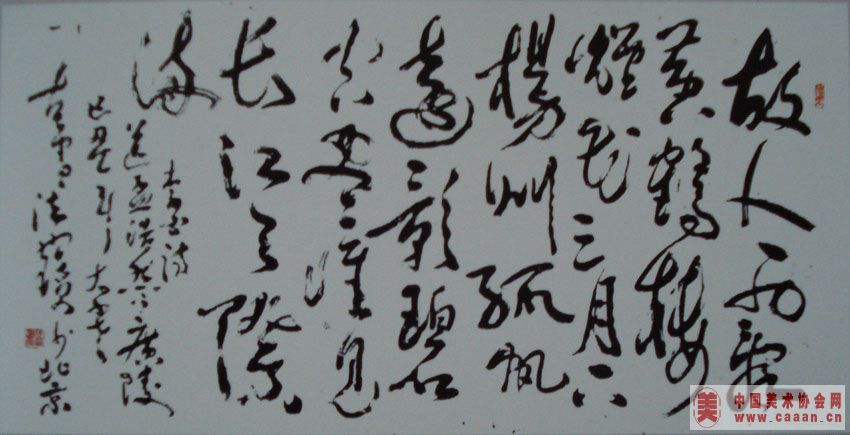 故人西辞
黄鹤楼
煙花三月下
楊州孤帆
遠影碧
空尽唯见
长江天際流
李白诗
送孟浩然之广陵
己丑年
北京
中国美术协会网
www.caaan.cn
美